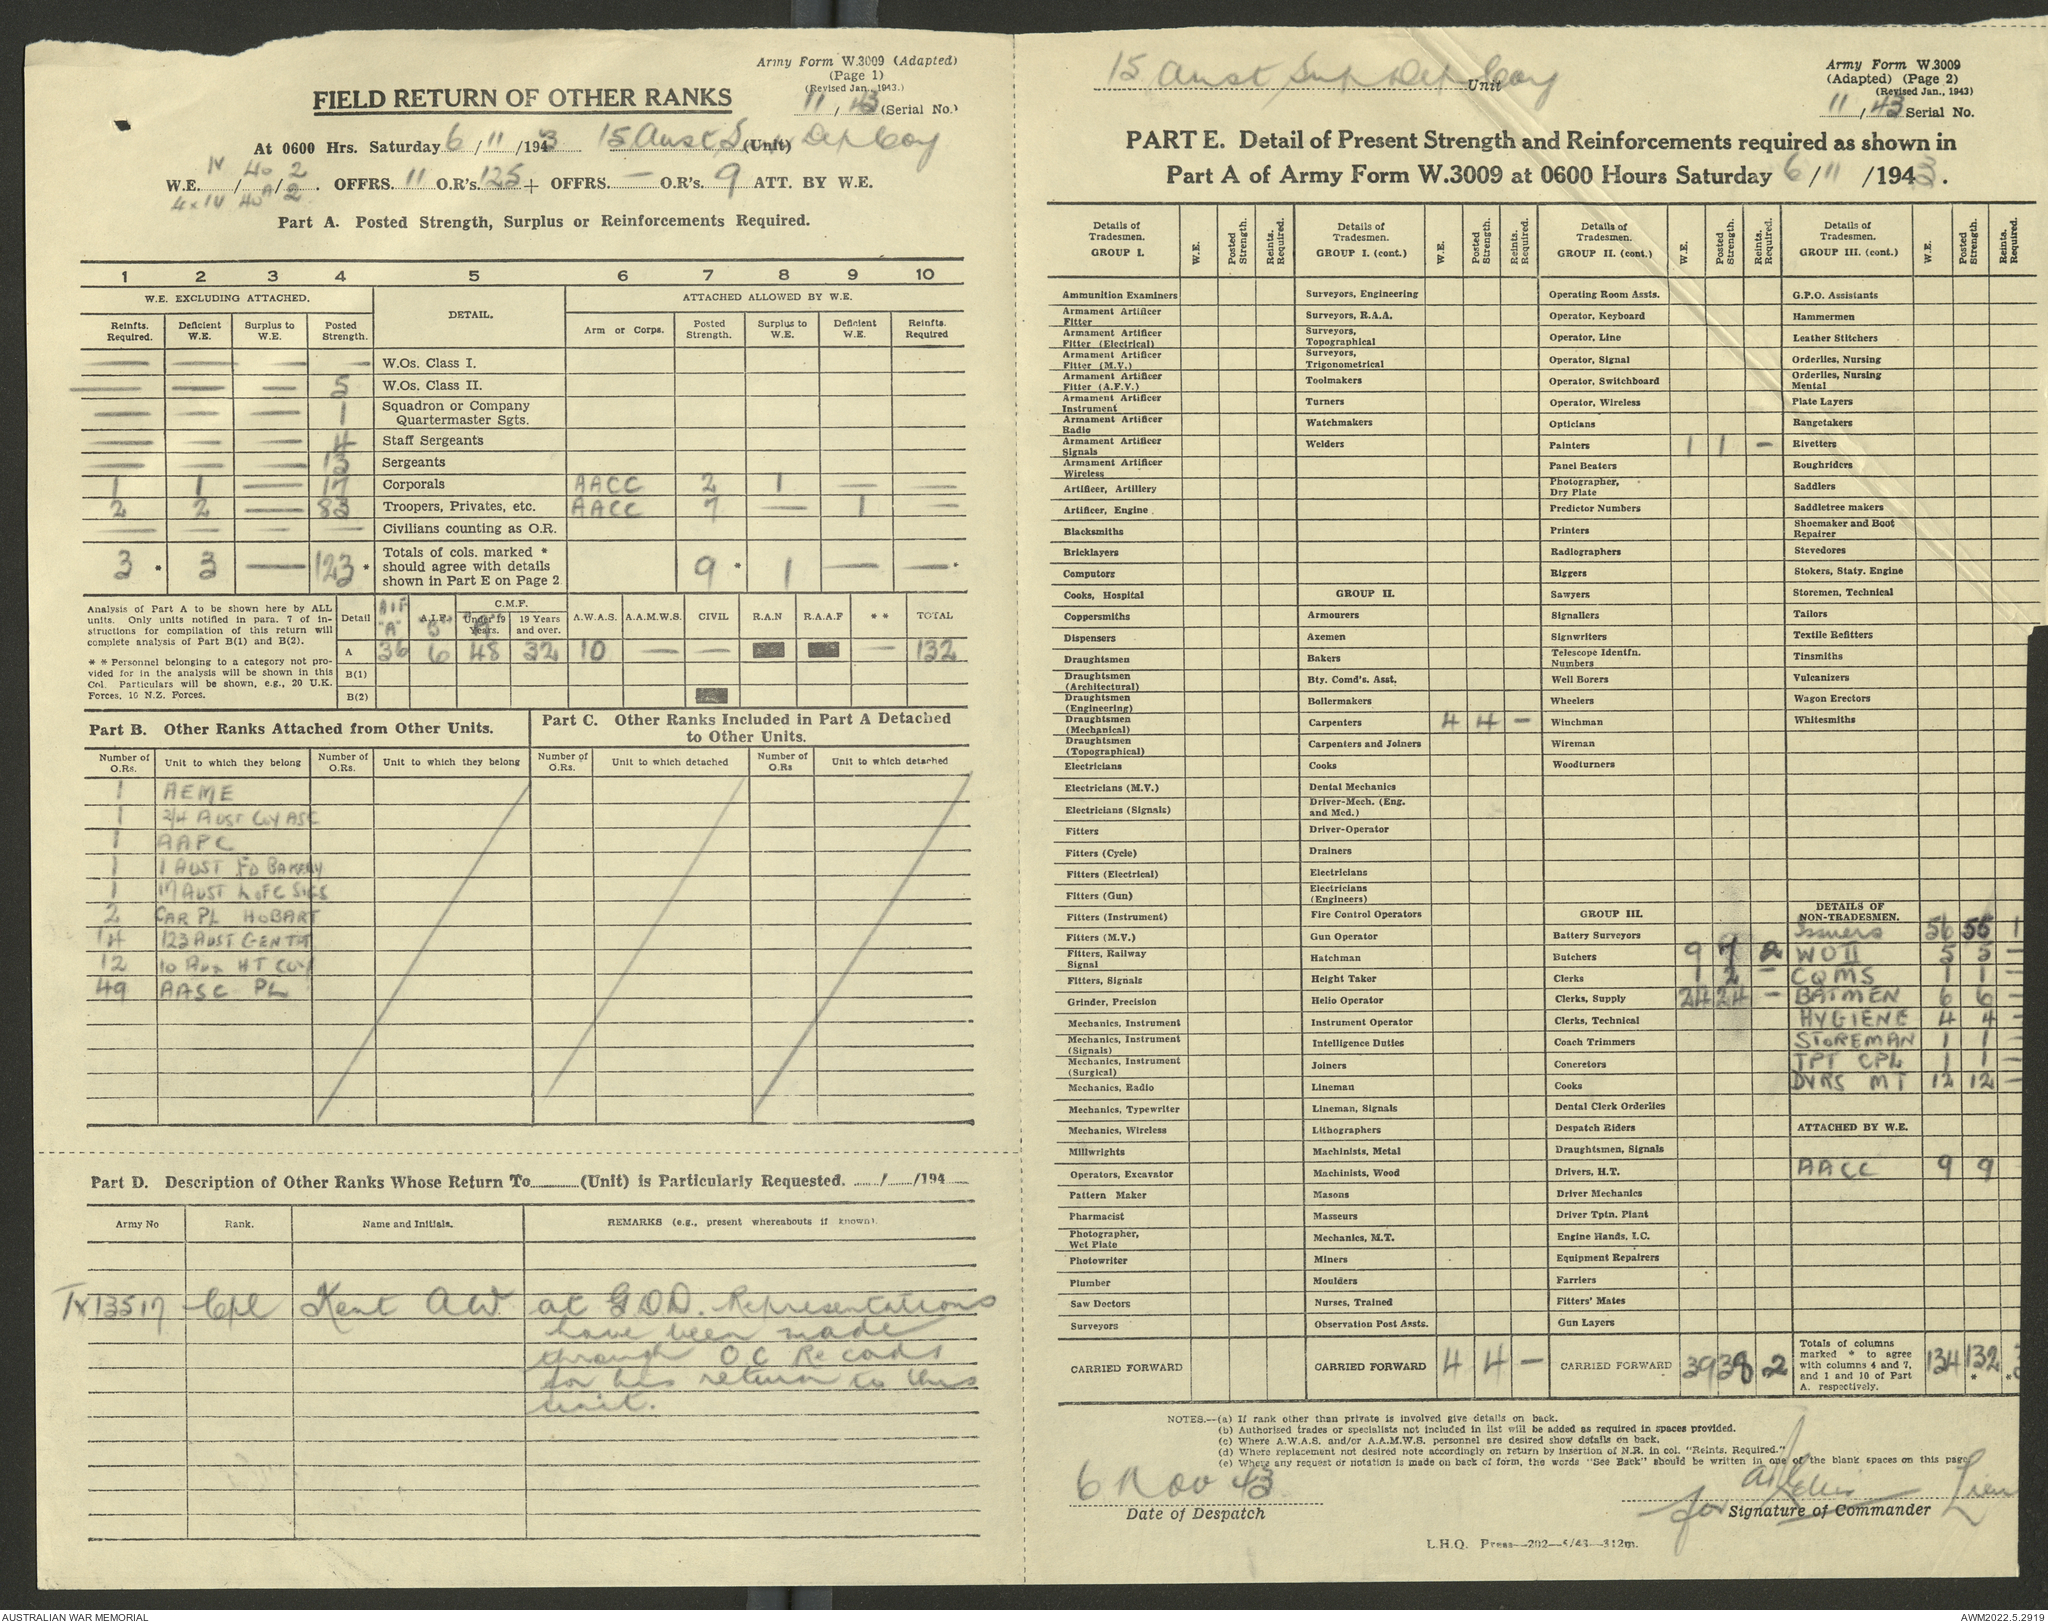 Army Form W.3009 (Adapted)
(Page 1)
(Revised Jan., 1943.)
11 / 43 (Serial No.)
FIELD RETURN OF OTHER RANKS
At 0600 Hrs. Saturday 6 / 11 / 1943 15 Aust Sup Dep Coy (Unit)
W.E. IV / 40 / 2 . OFFRS. 11 O.R's. 125 + OFFRS. — O.R's. 9 ATT. BY W.E.
4 x IV 40A 2
Part A. Posted Strength, Surplus or Reinforcements Required.
1 2 3 4 5 6 7 8 9 10
W.E. EXCLUDING ATTACHED. DETAIL. ATTACHED ALLOWED BY W.E.
Reinfts. Required. Deficient W.E. Surplus to W.E. Posted Strength. Arm or Corps. Posted Strength. Surplus to W.E. Deficient W.E. Reinfts. Required
— — — — W.Os. Class I.
— — — 5 W.Os. Class II.
— — — 1 Squadron or Company Quartermaster Sgts.
— — — 4 Staff Sergeants
— — — 13 Sergeants
1 1 — 17 Corporals AACC 2 1 — —
2 2 — 83 Troopers, Privates, etc. AACC 7 — 1 —
— — — — Civilians counting as O.R.
3 * 3 — 123 * Totals of cols. marked * should agree with details shown in Part E on Page 2. 9 * 1 — — *
Analysis of Part A to be shown here by ALL
units. Only units notified in para. 7 of in-
structions for compilation of this return will
complete analysis of Part B(1) and B(2).
* * Personnel belonging to a category not pro-
vided for in the analysis will be shown in this
Col. Particulars will be shown, e.g., 20 U.K.
Forces, 10 N.Z. Forces.
Detail AIF "A" A.I.F. "B" C.M.F. Under 19 Years. 19 Years and over. A.W.A.S. A.A.M.W.S. CIVIL R.A.N R.A.A.F * * TOTAL
A 36 6 48 32 10 — — — 132
B(1)
B(2)
Part B. Other Ranks Attached from Other Units.
Part C. Other Ranks Included in Part A Detached
to Other Units.
Number of O.Rs. Unit to which they belong Number of O.Rs. Unit to which they belong Number of O.Rs. Unit to which detached Number of O.Rs Unit to which detached
1 AEME
1 2/4 AUST COY ASC
1 AAPC
1 1 AUST FD BAKERY
1 17 AUST L OF C SIGS
2 CAR PL HOBART
14 123 AUST GEN TPT
12 10 Aus HT COY
49 AASC PL
Part D. Description of Other Ranks Whose Return To (Unit) is Particularly Requested. / /194
Army No Rank. Name and Initials. REMARKS (e.g., present whereabouts if known).
TX13517 Cpl Kent AW at GDD. Representations
have been made
through OC Records
for his return to this
unit.
15 Aust Sup Dep Coy Unit
Army Form W.3009
(Adapted) (Page 2)
(Revised Jan., 1943)
11 / 43 Serial No.
PART E. Detail of Present Strength and Reinforcements required as shown in
Part A of Army Form W.3009 at 0600 Hours Saturday 6 / 11 /1943.
Details of Tradesmen. GROUP I. W.E. Posted Strength. Reints. Required.
Ammunition Examiners
Armament Artificer Fitter
Armament Artificer Fitter (Electrical)
Armament Artificer Fitter (M.V.)
Armament Artificer Fitter (A.F.V.)
Armament Artificer Instrument
Armament Artificer Radio
Armament Artificer Signals
Armament Artificer Wireless
Artificer, Artillery
Artificer, Engine
Blacksmiths
Bricklayers
Computors
Cooks, Hospital
Coppersmiths
Dispensers
Draughtsmen
Draughtsmen (Architectural)
Draughtsmen (Engineering)
Draughtsmen (Mechanical)
Draughtsmen (Topographical)
Electricians
Electricians (M.V.)
Electricians (Signals)
Fitters
Fitters (Cycle)
Fitters (Electrical)
Fitters (Gun)
Fitters (Instrument)
Fitters (M.V.)
Fitters, Railway Signal
Fitters, Signals
Grinder, Precision
Mechanics, Instrument
Mechanics, Instrument (Signals)
Mechanics, Instrument (Surgical)
Mechanics, Radio
Mechanics, Typewriter
Mechanics, Wireless
Millwrights
Operators, Excavator
Pattern Maker
Pharmacist
Photographer, Wet Plate
Photowriter
Plumber
Saw Doctors
Surveyors
CARRIED FORWARD
Details of Tradesmen. GROUP I. (cont.) W.E. Posted Strength. Reints. Required.
Surveyors, Engineering
Surveyors, R.A.A.
Surveyors, Topographical
Surveyors, Trigonometrical
Toolmakers
Turners
Watchmakers
Welders
GROUP II.
Armourers
Axemen
Bakers
Bty. Comd's. Asst.
Boilermakers
Carpenters 4 4 —
Carpenters and Joiners
Cooks
Dental Mechanics
Driver-Mech. (Eng. and Med.)
Driver-Operator
Drainers
Electricians
Electricians (Engineers)
Fire Control Operators
Gun Operator
Hatchman
Height Taker
Helio Operator
Instrument Operator
Intelligence Duties
Joiners
Lineman
Lineman, Signals
Lithographers
Machinists, Metal
Machinists, Wood
Masons
Masseurs
Mechanics, M.T.
Miners
Moulders
Nurses, Trained
Observation Post Assts.
CARRIED FORWARD 4 4 —
Details of Tradesmen. GROUP II. (cont.) W.E. Posted Strength. Reints. Required.
Operating Room Assts.
Operator, Keyboard
Operator, Line
Operator, Signal
Operator, Switchboard
Operator, Wireless
Opticians
Painters 1 1 —
Panel Beaters
Photographer, Dry Plate
Predictor Numbers
Printers
Radiographers
Riggers
Sawyers
Signallers
Signwriters
Telescope Identfn. Numbers
Well Borers
Wheelers
Winchman
Wireman
Woodturners
GROUP III.
Battery Surveyors
Butchers 9 7 2
Clerks 1 2 —
Clerks, Supply 24 24 —
Clerks, Technical
Coach Trimmers
Concretors
Cooks
Dental Clerk Orderlies
Despatch Riders
Draughtsmen, Signals
Drivers, H.T.
Driver Mechanics
Driver Tptn. Plant
Engine Hands, I.C.
Equipment Repairers
Farriers
Fitters' Mates
Gun Layers
CARRIED FORWARD 39 38 2
Details of Tradesmen. GROUP III. (cont.) W.E. Posted Strength. Reints. Required.
G.P.O. Assistants
Hammermen
Leather Stitchers
Orderlies, Nursing
Orderlies, Nursing Mental
Plate Layers
Rangetakers
Rivetters
Roughriders
Saddlers
Saddletree makers
Shoemaker and Boot Repairer
Stevedores
Stokers, Staty. Engine
Storemen, Technical
Tailors
Textile Refitters
Tinsmiths
Vulcanizers
Wagon Erectors
Whitesmiths
DETAILS OF NON-TRADESMEN.
Issuers 56 55 1
WOII 5 5 —
CQMS 1 1 —
BATMEN 6 6 —
HYGIENE 4 4 —
STOREMAN 1 1 —
TPT CPL 1 1 —
DVRS MT 12 12 —
ATTACHED BY W.E.
AACC 9 9
Totals of columns marked * to agree with columns 4 and 7, and 1 and 10 of Part A. respectively. 134 132 * *
NOTES.—(a) If rank other than private is involved give details on back.
(b) Authorised trades or specialists not included in list will be added as required in spaces provided.
(c) Where A.W.A.S. and/or A.A.M.W.S. personnel are desired show details on back.
(d) Where replacement not desired note accordingly on return by insertion of N.R. in col. "Reints. Required."
(e) Where any request or notation is made on back of form, the words "See Back" should be written in one of the blank spaces on this page.
6 Nov 43
Date of Despatch
for Signature of Commander
L.H.Q. Press—202—5/43—312m.
AUSTRALIAN WAR MEMORIAL
AWM2022.5.2919